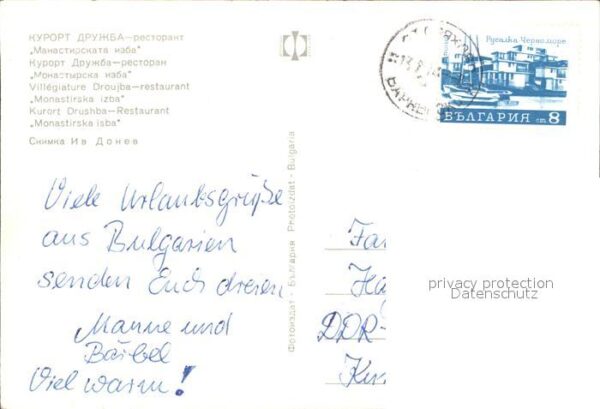 КУРОРТ ДРУЖБА—ресторант
„Манастирската изба"
Курорт Дружба—ресторан
„Монастырска изба"
Villégiature Droujba—restaurant
"Monastirska izba"
Kurort Drushba—Restaurant
"Monastirska isba"
Снимка Ив Донев
Фотоиздат - България Photoizdat - Bulgaria
Русалка Черно море
БЪЛГАРИЯ ст. 8
Viele Urlaubsgrüße
aus Bulgarien
senden Euch dreien
Manne und
Bärbel
Viel warm!
Fa
Ha
DDR-
privacy protection
Datenschutz